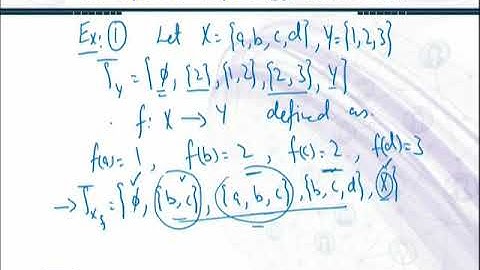 Ex: ① Let X = {a,b,c,d}, Y = {1,2,3}
T_Y = {φ, {2}, {1,2}, {2,3}, Y}
f: X → Y defined as
f(a) = 1, f(b) = 2, f(c) = 2, f(d) = 3
→ T_X_f = {φ, {b,c}, {a,b,c}, {b,c,d}, X}